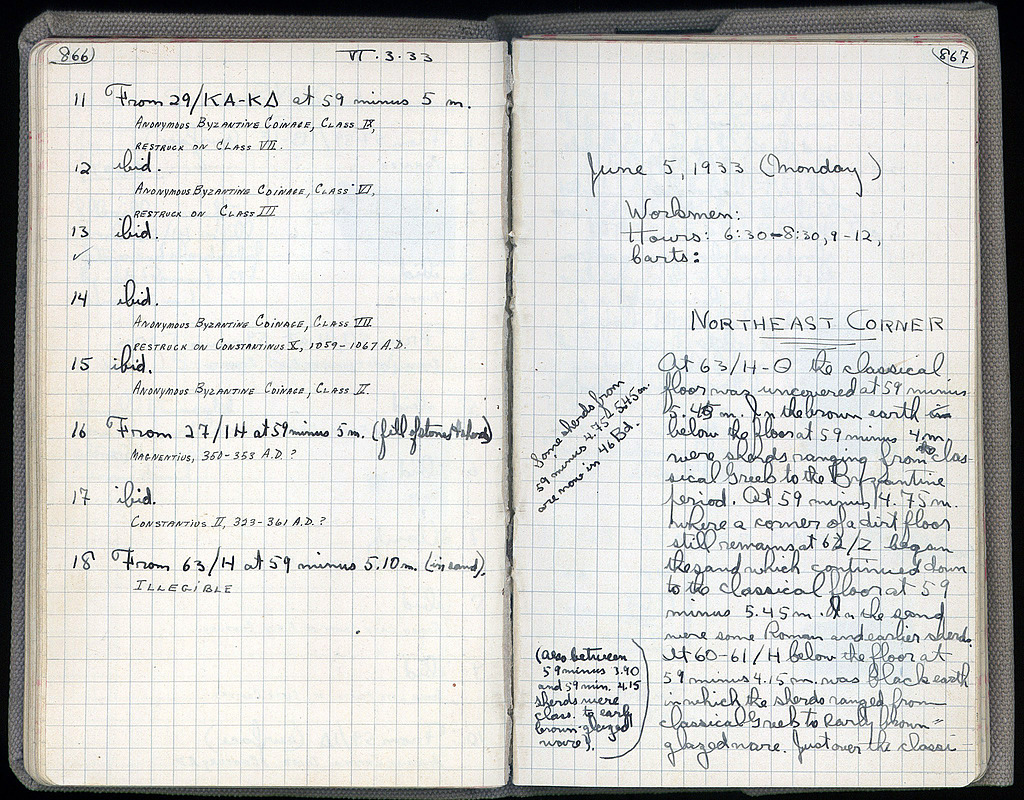 866
VI.3.33
11 From 29/ΚΑ-ΚΔ at 59 minus 5 m.
Anonymous Byzantine Coinage, Class IX,
restruck on Class VII.
12 ibid.
Anonymous Byzantine Coinage, Class VI,
restruck on Class III
13 ibid.
✓
14 ibid.
Anonymous Byzantine Coinage, Class VII
restruck on Constantinus X, 1059-1067 A.D.
15 ibid.
Anonymous Byzantine Coinage, Class IX.
16 From 27/ΙΗ at 59 minus 5 m. (fill of stones & sherds)
Magnentius, 350-353 A.D. ?
17 ibid.
Constantius II, 323-361 A.D. ?
18 From 63/Η at 59 minus 5.10 m. (in sand).
Illegible
867
June 5, 1933 (Monday)
Workmen:
Hours: 6:30-8:30, 9-12,
Carts:
Northeast Corner
At 63/Η-Θ the classical
floor was uncovered at 59 minus
5.45 m. In the brown earth
below the floor at 59 minus 4 m
were sherds ranging from the clas-
sical Greek to the Byzantine
period. At 59 minus 4.75 m.
where a corner of a dirt floor
still remains at 62/Ζ began
the sand which continued down
to the classical floor at 59
minus 5.45 m. In the sand
were some Roman and earlier sherds.
At 60-61/Η below the floor at
59 minus 4.15 m. was black earth
in which the sherds ranged from
classical Greek to early brown-
glazed ware. Just over the classi-
Some sherds from
59 minus 4.75 & 5.45 m.
are now in 46 Bd.
(Also between
59 minus 3.90
and 59 min. 4.15
sherds were
class. to early
brown-glazed
ware).